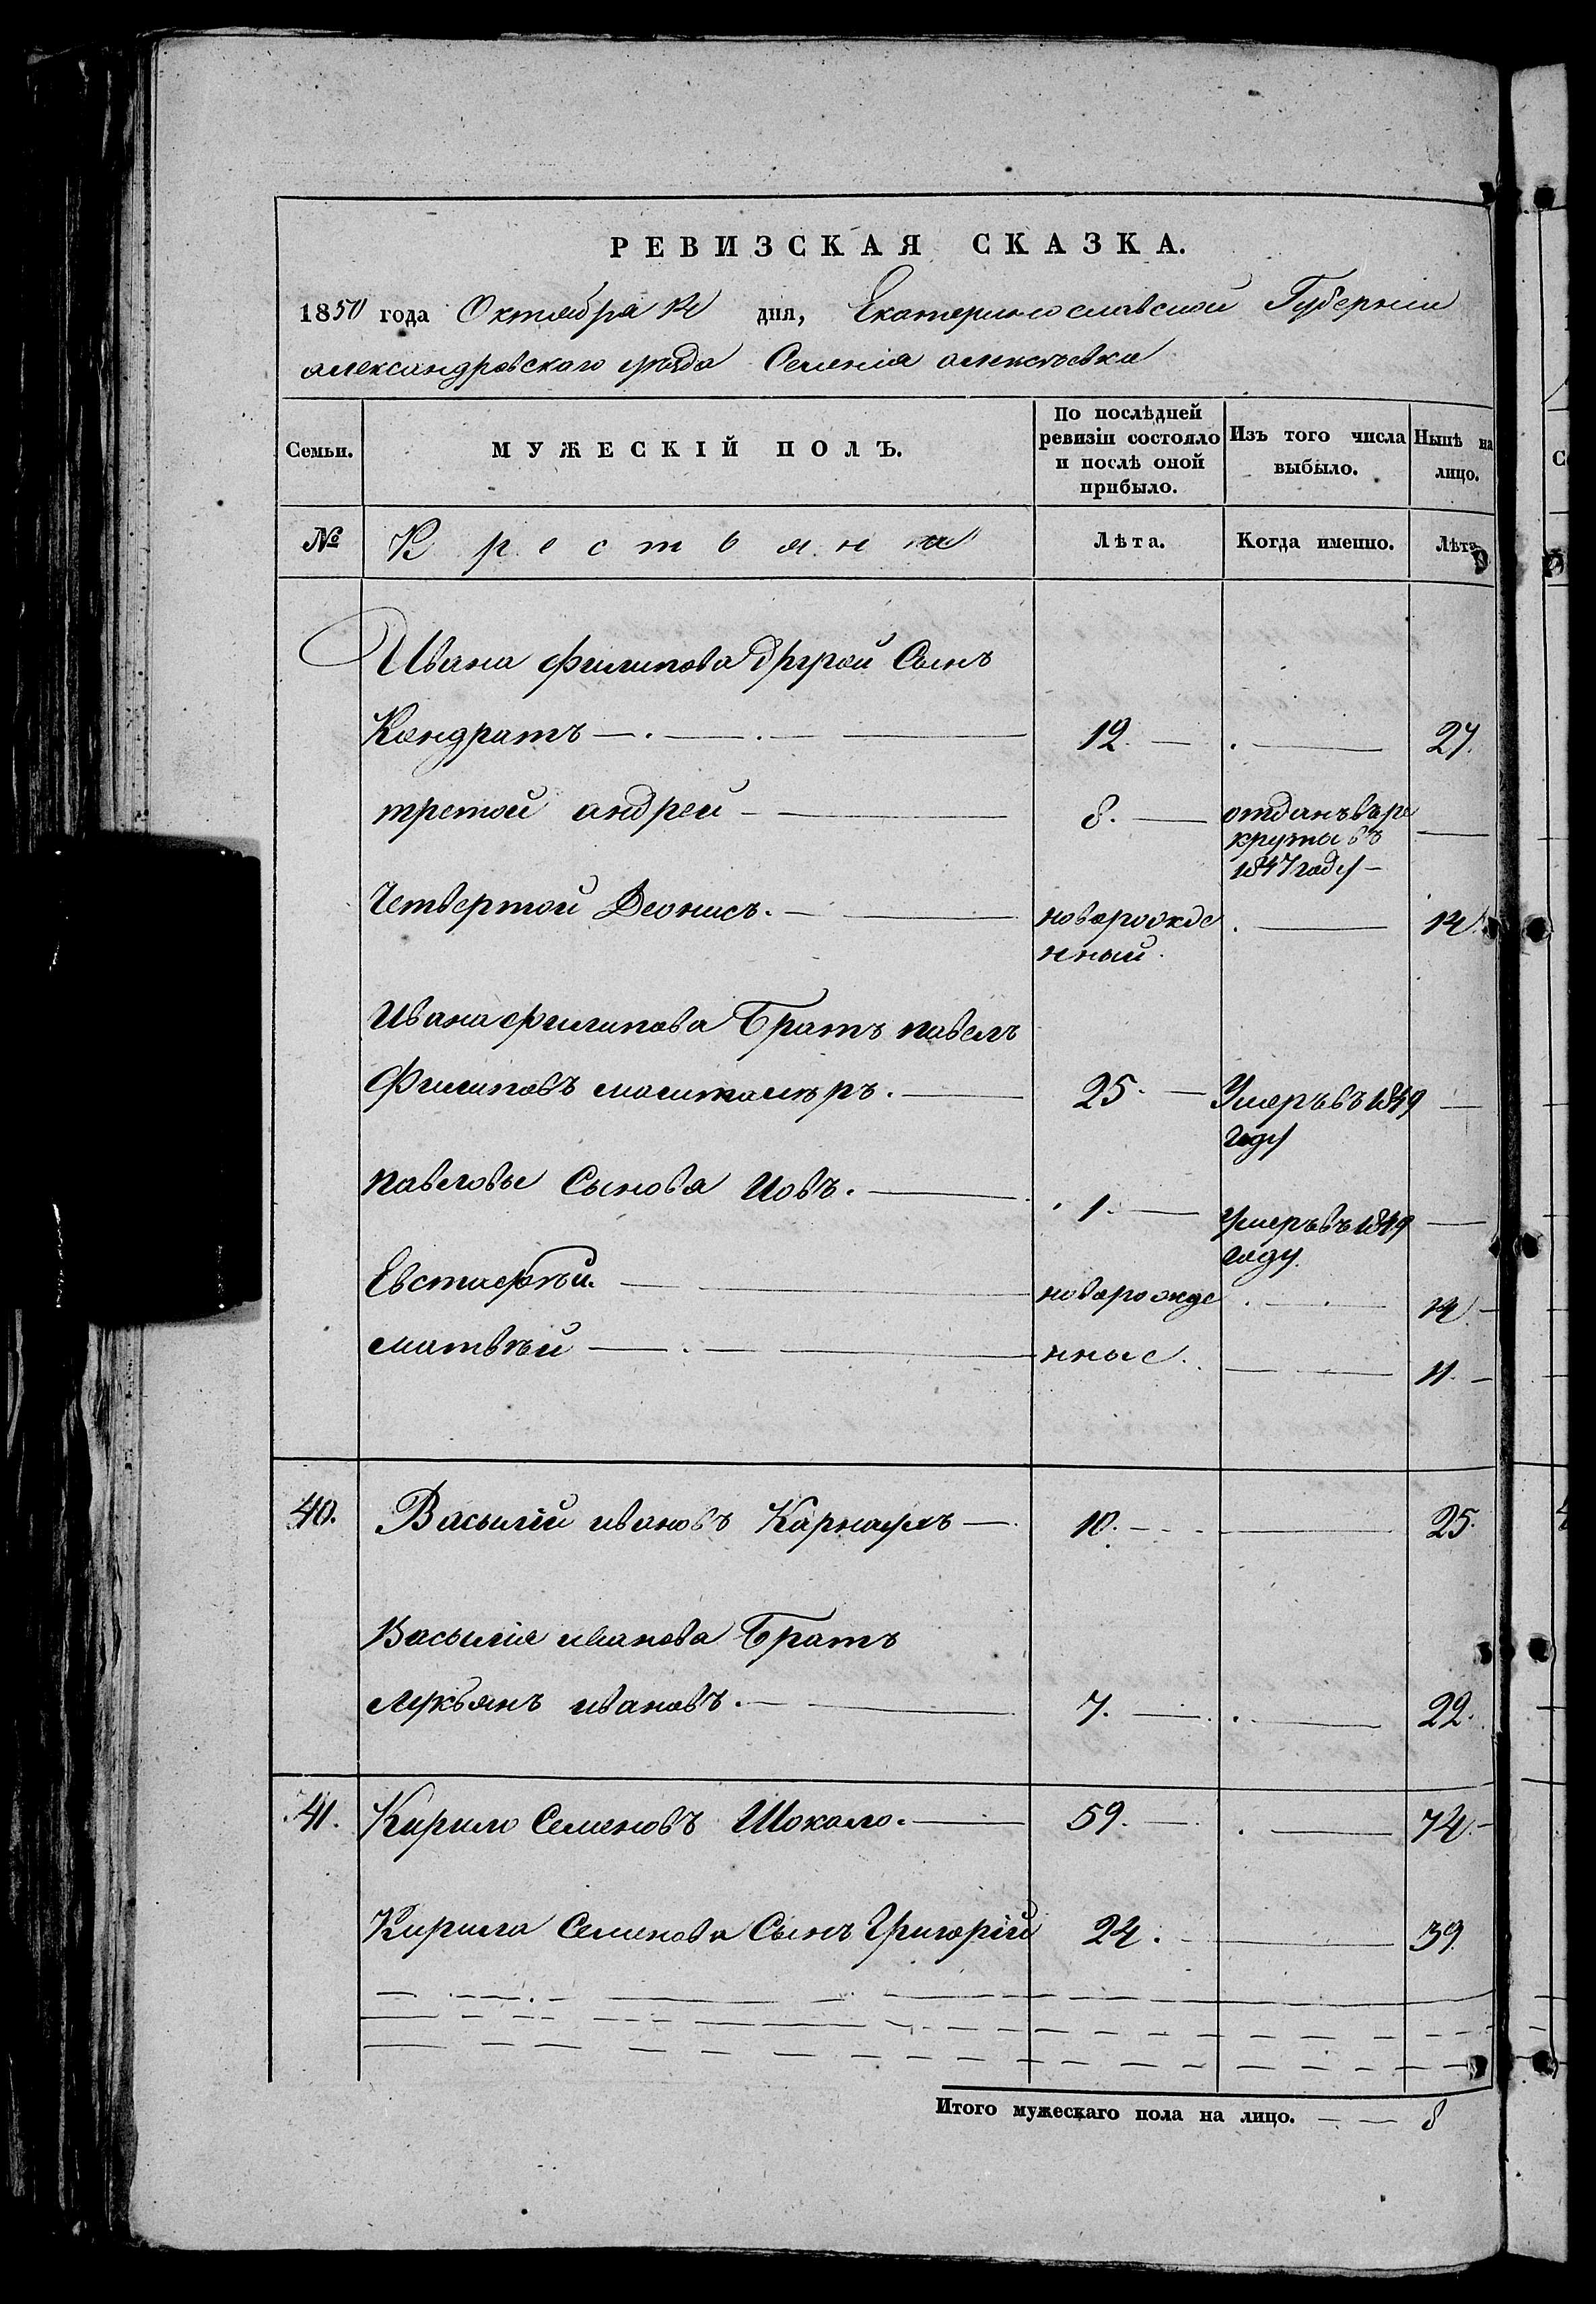 РЕВИЗСКАЯ СКАЗКА.
1850 года Октября 14 дня, Екатеринославской Губерніи
александровскаго уѣзда Селенія алексѣевки
Семьи.
МУЖЕСКІЙ ПОЛЪ.
По послѣдней ревизіи состояло и послѣ оной прибыло.
Изъ того числа выбыло.
Нынѣ на лицо.
№ Крестьяни Лѣта. Когда именно. Лѣта
Ивана филипова другой Сынъ
Кондратъ 12. 27.
третой андрей 8. отданъ въ ре
круты въ
1847 году
Четвертой Деонисъ. новорожде 14.
нный.
Ивана филипова Братъ павелъ
Филиповъ 25. Умеръ въ 1849
году
павловы Сынова Иовъ. 1. Умеръ въ 1849
году.
Евстафѣй. новорожде 14.
матвѣй нные. 11.
40. Василій ивановъ Карнаухъ 10. 25.
Василія иванова Братъ
лукьянъ ивановъ. 7. 22.
41. Кирило Семеновъ Шокало. 59. 74.
Кирила Семенова Сынъ Григорій 24. 39.
Итого мужескаго пола на лицо. 8